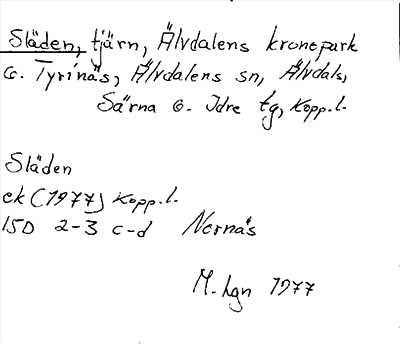 Släden, tjärn, Älvdalens kronopark
o. Tyrinäs, Älvdalens sn, Älvdals,
Särna o. Idre tg, Kopp. l.
Släden
ek (1977) Kopp. l.
15D 2-3 c-d Nornäs
M. Lgn 1977